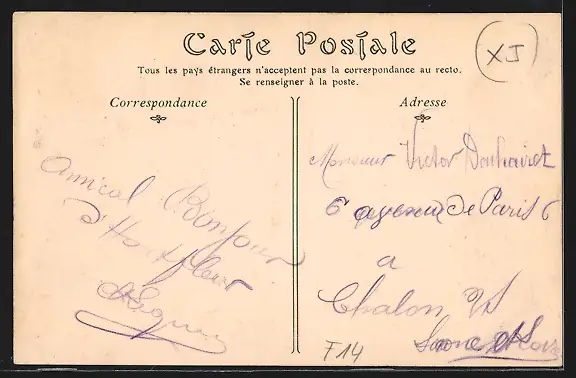 Carte Postale
Tous les pays étrangers n'acceptent pas la correspondance au recto.
Se renseigner à la poste.
Correspondance
Adresse
XJ
Amical Bonjour
d'Honfleur
Monsieur Victor
6 avenue de Paris 6
a
Chalon s/s
Saone et Loire
F14